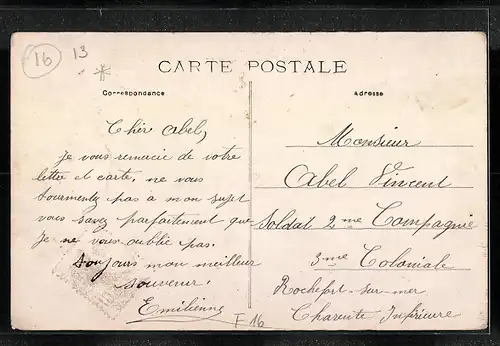 16
13
CARTE POSTALE
Correspondance
Adresse
Cher Abel,
Je vous remercie de votre
lettre et carte, ne vous
tourmentez pas à mon sujet
vous savez parfaitement que
Je ne vous oublie pas.
Toujours mon meilleur
souvenir.
Emilienne
Monsieur
Abel Vincent
Soldat 2me Compagnie
3me Coloniale
Rochefort-sur-mer
Charente Inférieure
F 16